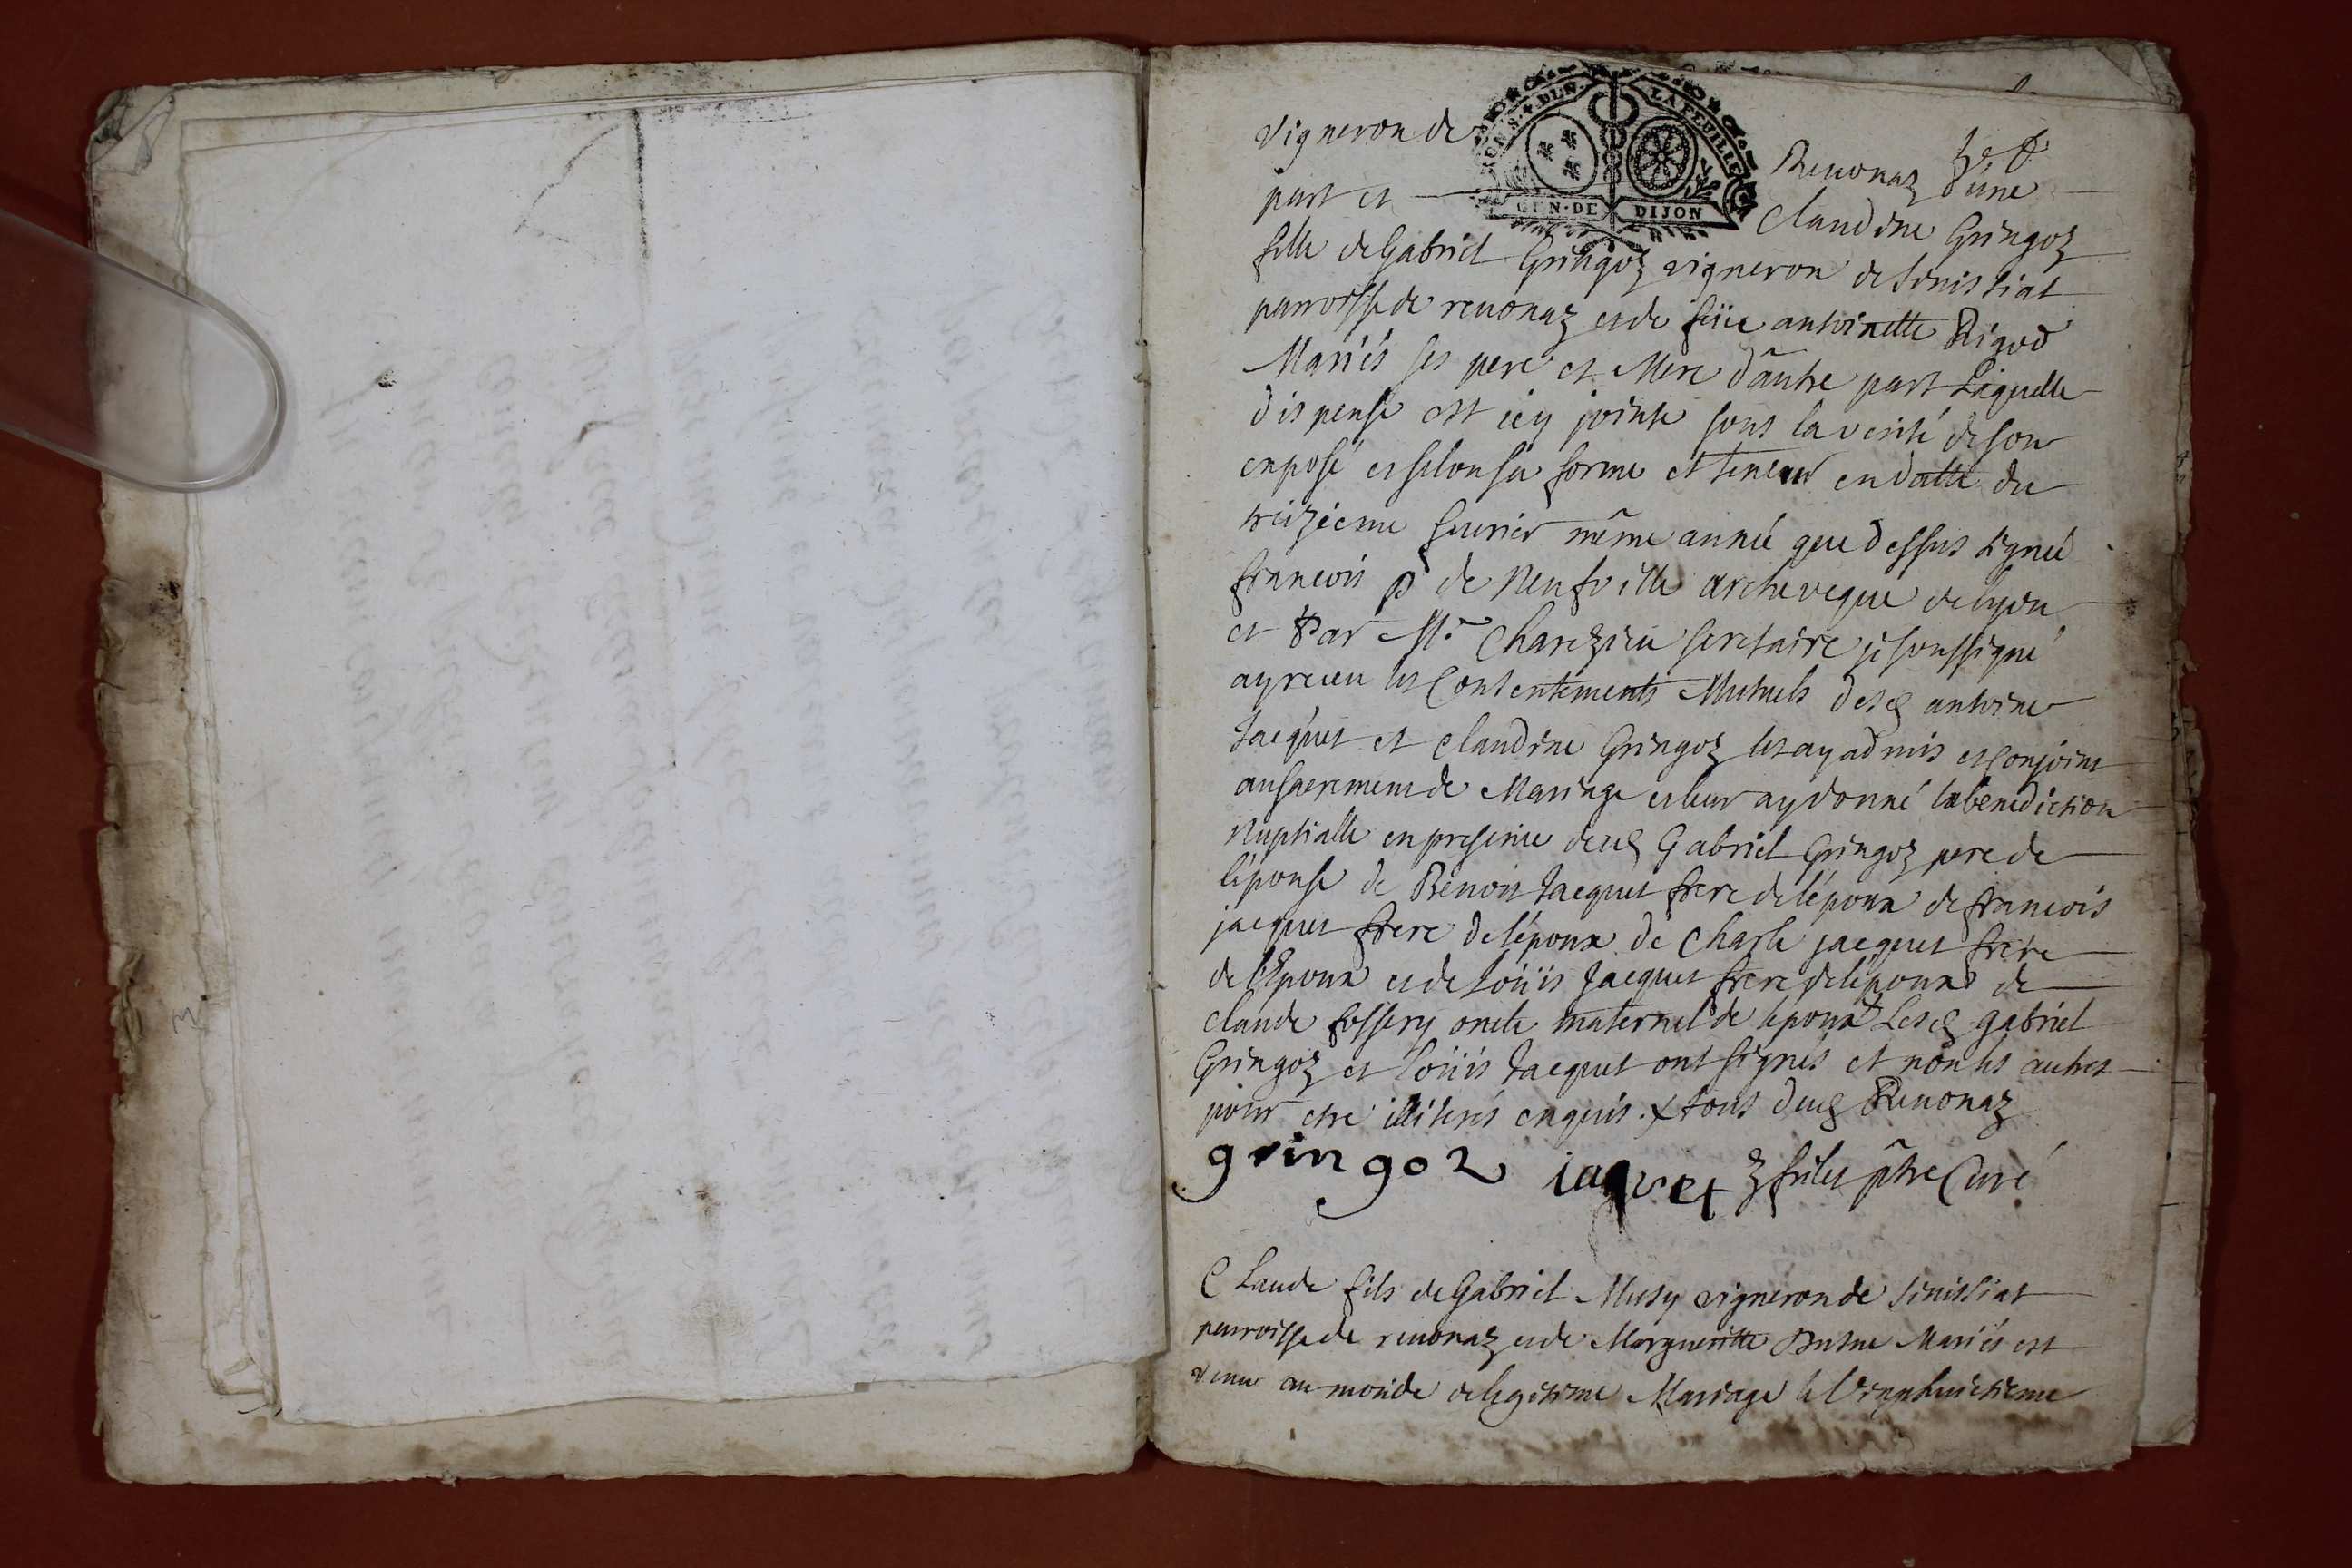 LA FEUILLE
GEN. DE DIJON
vigneron de Reuonaz d'une
part et Claudine Gringoz
fille de Gabriel Gringoz vigneron de Sinissiat
parroisse de reuonaz et de feüe antoinette Rigod
Mariés ses pere et Mere d'autre part Laquelle
dispense est icy jointe sous la verité de son
exposé et selon sa forme et teneur en datte du
treizieme feurier même année que dessus signée
francois p de Neufville archeveque de lyon
et Par Mr. Charezieu secretaire je soussigné
ay receu les Consentements Mutuels desd antoine
Jacquet et Claudine Gringoz les ay admis et conjoint
au sacrement de Mariage et leur ay donné la benediction
Nuptialle en presence dud Gabriel Gringoz pere de
l'épouse de Benoit Jacquet frere de l'époux de francois
jacquet frere de l'époux de Charle jacquet frere
de l'Epoux et de Loüis Jacquet frere de l'époux de
Claude fossery oncle maternel de l'époux Lesd gabriel
Gringoz et Loüis Jacquet ont signés et non les autres
pour etre illiterés enquis. x tous dud Reuonaz
gringoz iaquet ptre Curé
Claude fils de Gabriel Musy vigneron de Sinissiat
parroisse de reuonaz et de Margueritte Mariés est
venu au monde de legitime Mariage le Vingthuictieme